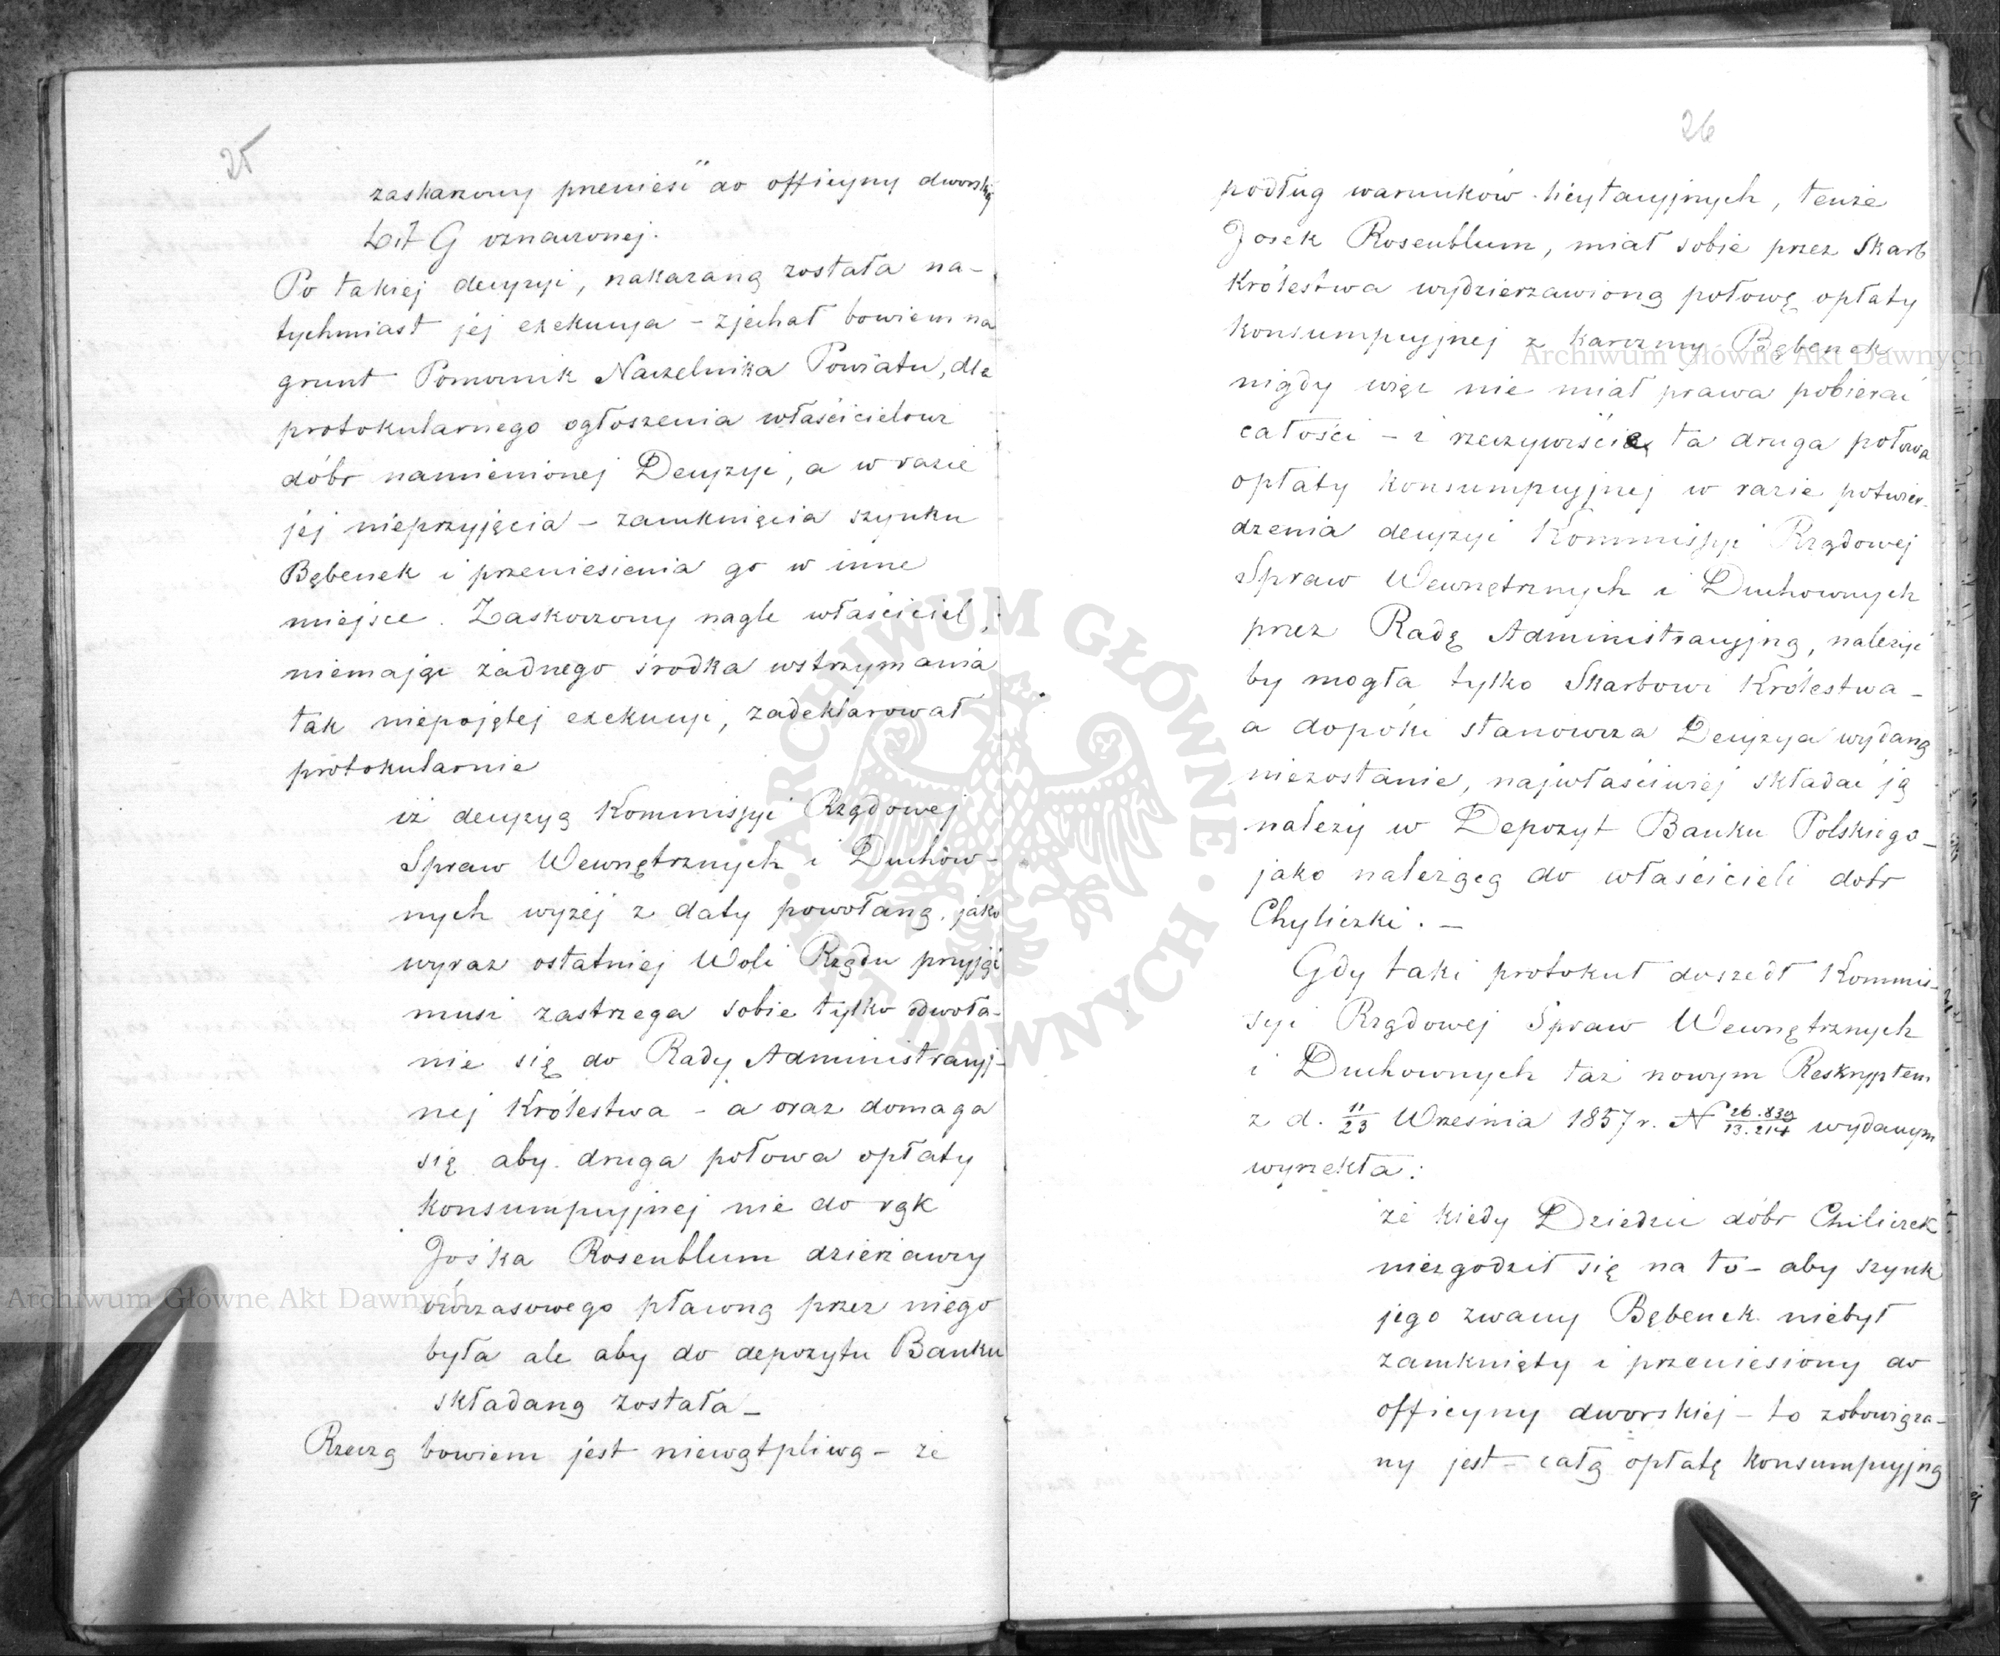 25
zaskarzony przenieść do officyny dworskiej
Lit G oznaczonej.
Po takiej decyzyi, nakazaną została na-
tychmiast jej exekucya – zjechał bowiem na
grunt Pomocnik Naczelnika Powiatu, dla
protokularnego ogłoszenia właścicielowi
dóbr namienionej Decyzyi, a w razie
jej nieprzyjęcia – zamknięcia szynku
Bębenek i przeniesienia go w inne
miejsce. Zaskoczony nagle właściciel,
niemając żadnego środka wstrzymania
tak niepojętej exekucyi, zadeklarował
protokularnie
iż decyzyą Kommissyi Rządowej
Spraw Wewnętrznych i Duchow-
nych wyżej z daty powołaną, jako
wyraz ostatniej Woli Rządu przyjąć
musi zastrzega sobie tylko odwoła-
nie się do Rady Administracyj-
nej Królestwa – a oraz domaga
się aby druga połowa opłaty
konsumpcyjnej nie do rąk
Jośka Rosenblum dzierżawcy
ówczasowego płaconą przez niego
była ale aby do depozytu Banku
składaną została –
Rzeczą bowiem jest niewątpliwą – że
26
podług warunków licytacyjnych, tenże
Josek Rosenblum, miał sobie przez Skarb
Królestwa wydzierżawioną połowę opłaty
konsumpcyjnej z karczmy Bębenek
nigdy więc nie miał prawa pobierać
całości – i rzeczywiście ta druga połowa
opłaty konsumpcyjnej w razie potwier-
dzenia decyzyi Kommissyi Rządowej
Spraw Wewnętrznych i Duchownych
przez Radę Administracyjną, należyć
by mogła tylko Skarbowi Królestwa –
a dopóki stanowcza Decyzya wydaną
niezostanie, najwłaściwiej składać ją
należy w Depozyt Banku Polskiego –
jako należącą do właścicieli dobr
Chyliczki. –
Gdy taki protokuł doszedł Kommis-
syi Rządowej Spraw Wewnętrznych
i Duchownych taż nowym Reskryptem
z d. 11/23 Września 1857 r. N 26.839/13.214 wydanym
wyrzekła:
że kiedy Dziedzic dóbr Chiliczek
niezgodził się na to – aby szynk
jego zwany Bębenek niebył
zamknięty i przeniesiony do
officyny dworskiej – to zobowiąza-
ny jest – całą opłatę konsumpcyjną
Archiwum Główne Akt Dawnych
Archiwum Główne Akt Dawnych
ARCHIWUM GŁÓWNE AKT DAWNYCH